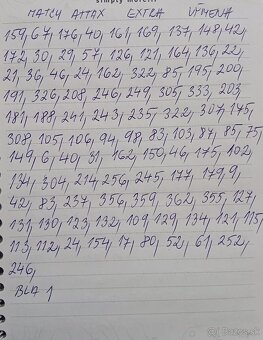 MATCH ATTAX EXTRA VÝMENA
159, 67, 176, 40, 161, 169, 137, 148, 42,
172, 30, 29, 57, 126, 121, 164, 136, 22,
21, 36, 46, 24, 162, 322, 85, 195, 200,
191, 326, 208, 246, 249, 305, 333, 203
181, 188, 241, 243, 235, 322, 307, 175,
308, 105, 106, 94, 98, 83, 103, 87, 85, 75,
149, 6, 40, 31, 162, 150, 46, 175, 102,
134, 304, 214, 256, 245, 177, 179, 9,
42, 83, 237, 356, 359, 362, 355, 127,
131, 130, 123, 132, 109, 129, 134, 121, 115,
113, 112, 24, 154, 17, 80, 52, 61, 252,
246,
BLA 1